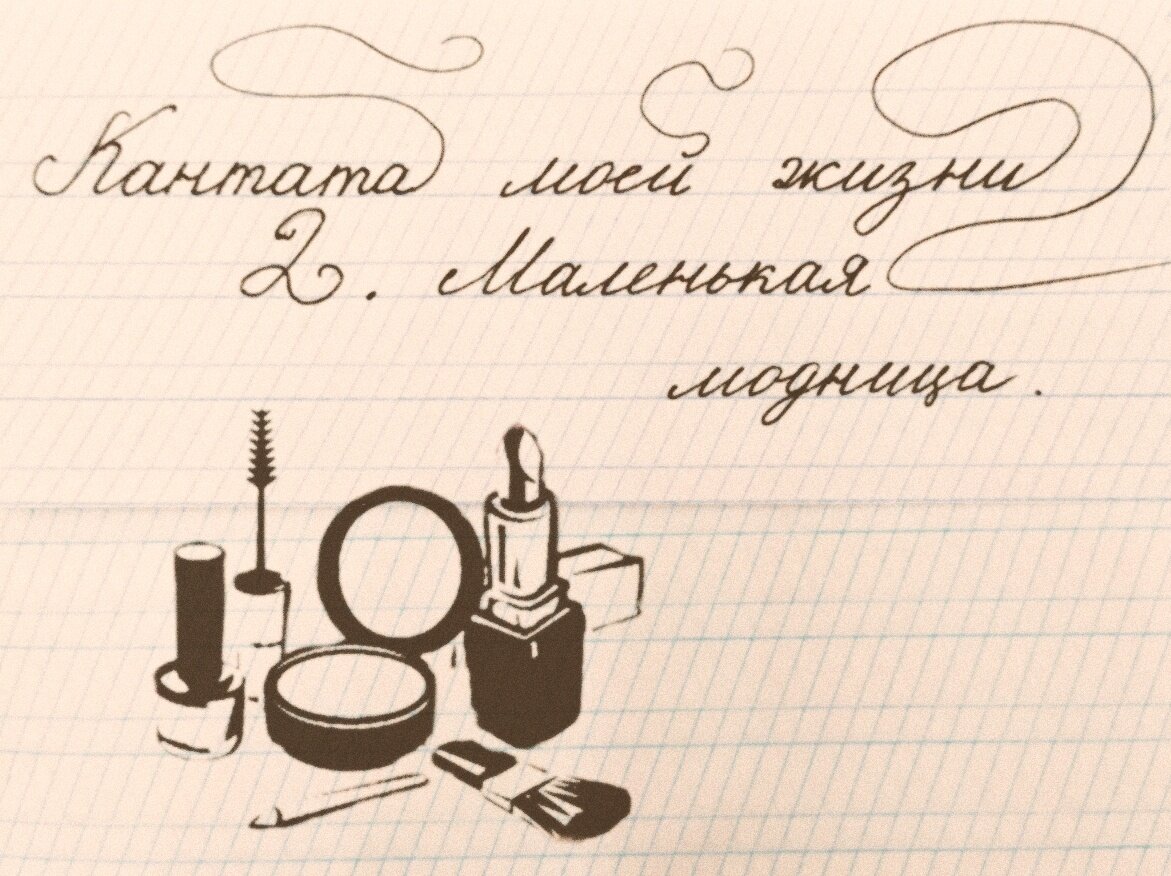 Кантата моей жизни
2. Маленькая
модница.